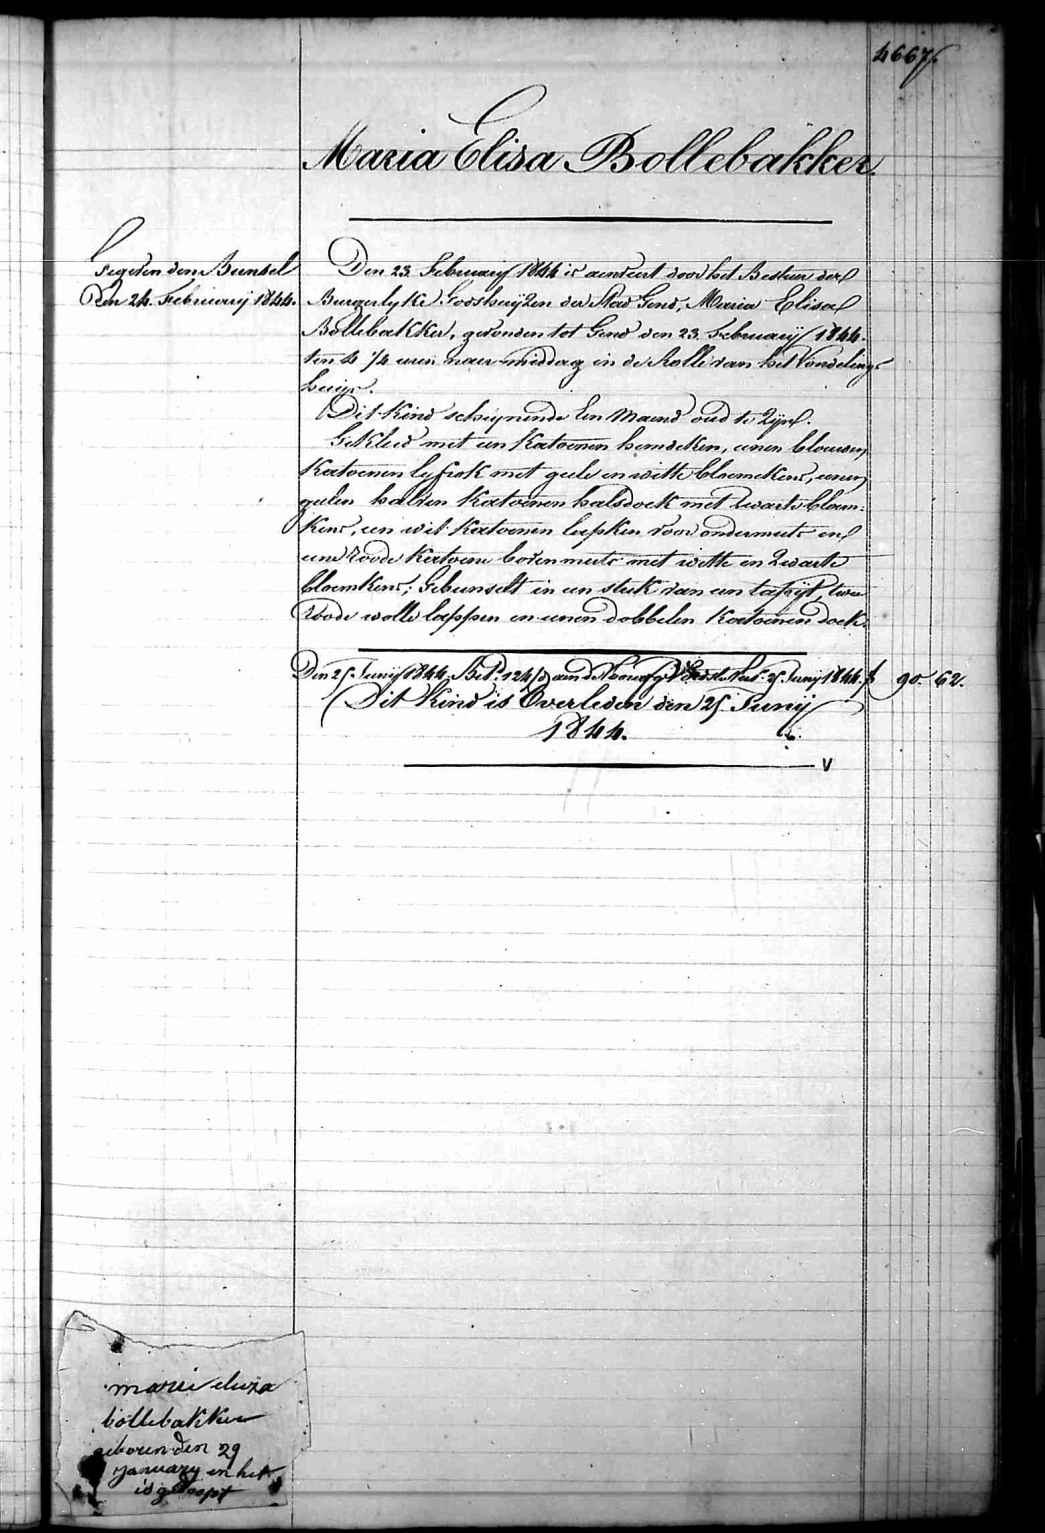 4667.
Maria Elisa Bollebakker.
Gegeven eenen Bunsel
Den 24. February 1844.
Den 23 February 1844 is aenveert door het Bestuer der
Burgerlyke Godshuijzen der Stad Gend, Maria Elisa
Bollebakker, gevonden tot Gend den 23 February 1844.
ten 4 1/4 uren naer-middag in de Rolle van het Vondelings
huijs.
Dit Kind schijnende Een Maend oud te Zijn.
Gekleed met een Katoenen hemdeken, eenen blouwen
Katoenen lyfrok met geele en witte bloemekens, eenen
geelen halven Katoenen halsdoek met zwarte bloem=
kens, een wit Katoenen lapken voor ondermuts en
eene roode Katoene bovenmuts met witte en Zwarte
bloemkens; Gebunselt in een stuk van een tapyt, twee
roode wolle lappen en eenen dobbelen Katoenen doek.
Den 25 Junij 1844. Bet. 124 d aen de 25 Junij 1844. f 90. 62.
Dit Kind is Overleden den 25 Junij
1844.
V
marie eliza
bollebakker
geboren den 29
january en het
is gedoopt